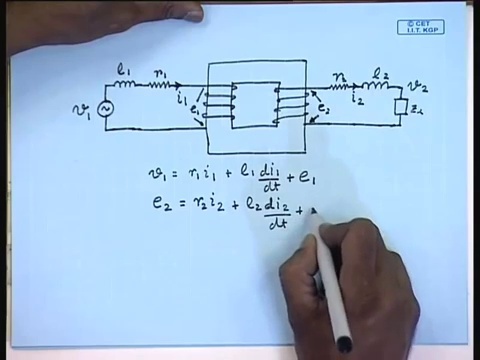 © CET
I.I.T. KGP
l₁ r₁ r₂ l₂
v₁ i₁ e₁ e₂ i₂ v₂ Z_L
v₁ = r₁i₁ + l₁ di₁/dt + e₁
e₂ = r₂i₂ + l₂ di₂/dt +